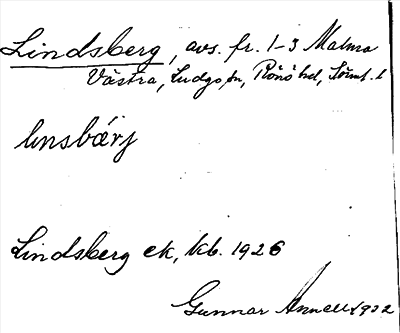 Lindsberg, avs. fr. 1-3 Malma
Västra, Ludgo sn, Rönö hd, Sörml. l
linsbärj
Lindsberg ek, kb. 1926
Gunnar Annell 1932